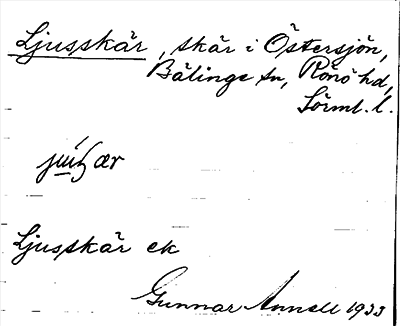 Ljusskär, skär i Östersjön,
Bälinge sn, Rönö hd,
Sörml. l.
Ljusskär ek
Gunnar Annell 1933